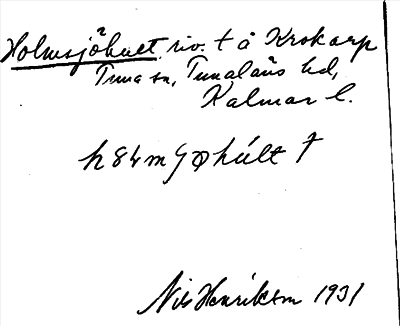 Holmsjöhult riv. t å Krokarp
Tuna sn, Tunaläns hd,
Kalmar l.
hult †
Nils Henrikson 1931